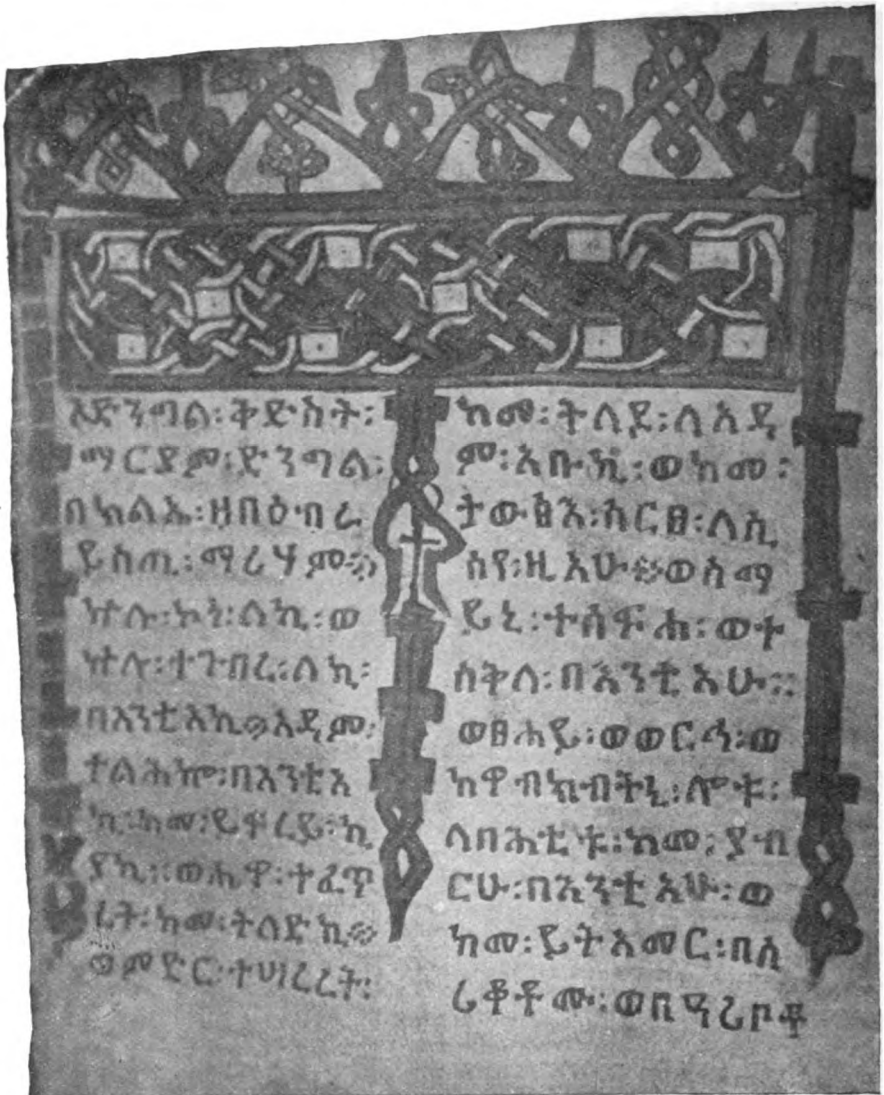 ኦድንግል፡ቅድስት፡
ማርያም፡ድንግል፡
በካልኤ፡ዘበዕብራ
ይስጢ፡ማሪሃም፨
ኵሉ፡ኮነ፡ለኪ፡ወ
ኵሉ፡ተገብረ፡ለኪ፡
በእንቲአኪ፡አዳም፡
ተልሕኰ፡በእንቲአ
ኪ፡ከመ፡ይፍረይ፡ኪ
ያኪ፡፡ወሔዋ፡ተፈጥ
ረት፡ከመ፡ትለድኪ፨
ወምድር፡ተሣረረት፡
ከመ፡ትለዶ፡ለአዳ
ም፡አቡኪ፡ወከመ፡
ታውፅእ፡ሐርፀ፡ለሲ
ሲየ፡ዚአሁ፨ወሰማ
ይኒ፡ተሰፍሐ፡ወተ
ሰቅለ፡በእንቲአሁ፡፡
ወፀሐይ፡ወወርኅ፡ወ
ከዋብክብትኒ፡ሎቱ፡
ለባሕቲቱ፡ከመ፡ያብ
ርሁ፡በእንቲአሁ፡ወ
ከመ፡ይትአመር፡በሲ
ሬቆቶሙ፡ወበዓሪቦቶ